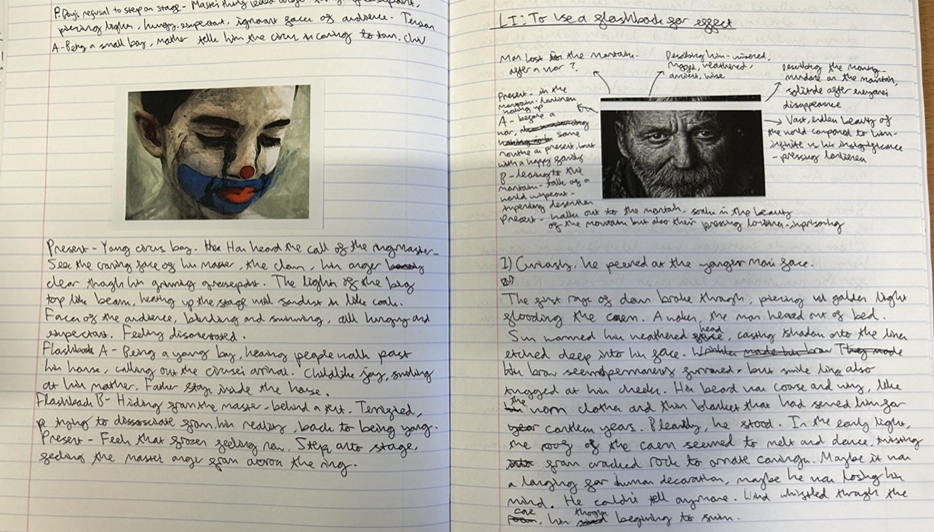 piercing lights, hungry, expectant, ignorant faces of audience. Tension
A - Being a small boy, mother tells him the circus is coming to town.
Present - Young circus boy. Has heard the call of the ringmaster -
See the craving face of his master, the clown, his anger
clear though his grinning greasepaint. The lights of the big
top like beam, heating up the stage until sawdust is like coals.
Faces of the audience, blinding and swimming, all hungry and
expectant. Feeling disorientated.
Flashback A - Being a young boy, hearing people walk past
his house, calling out the circuses arrival. Childlike joy, smiling
at his mother. Father stays inside the house.
Flashback B - Hiding from the master - behind a tent. Terrified,
trying to dissociate from his reality, back to being young.
Present - Feel that frozen feeling now. Steps onto stage,
feeling the master anger from across the ring.
LI: To use a flashback for effect
Man lost in the mountain.
after a war?
Describing him - wizened,
rugged, weathered,
ancient, wise
Describing the
mundane on the mountain,
solitude after everyones
disappearance
→ Vast, endless beauty of
the world compared to him -
insight to his insignificance
- pressing loneliness
Present - in the
mountain - loneliness
A - before a
war, some
months at present, lost
with a happy family
B - leaving to the
mountain - talk of a
world wipeout -
impending destruction
Present - walks out to the mountain, soaks in the beauty
of the mountain but also their pressing loneliness - imprisoning
1) Curiously, he peered at the younger man's face.
The first rays of dawn broke through, piercing with golden light
flooding the cavern. Awoken, the man heaved out of bed.
Sun warmed his weathered head, casting shadows onto the lines
etched deep into his face. Wrinkles made his brow They made
his brow seem permanently furrowed - but smile lines also
tugged at his cheeks. His beard was coarse and wiry, like
the worn clothes and thin blanket that had served him for
year countless years. Bleakly, he stood. In the early light,
the roof of the cavern seemed to melt and dance, twisting
into from cracked rock to ornate carvings. Maybe it was
a longing for human decoration, maybe he was losing his
mind. He couldn't tell anymore. Wind whistled through the
cave, his thoughts beginning to swim.